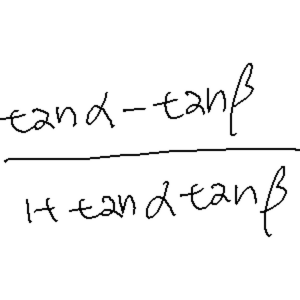 tanα - tanβ
1+ tanα tanβ